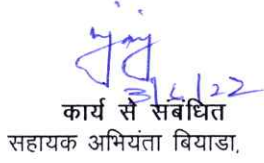 3/6/22
कार्य से संबंधित
सहायक अभियंता बियाडा,